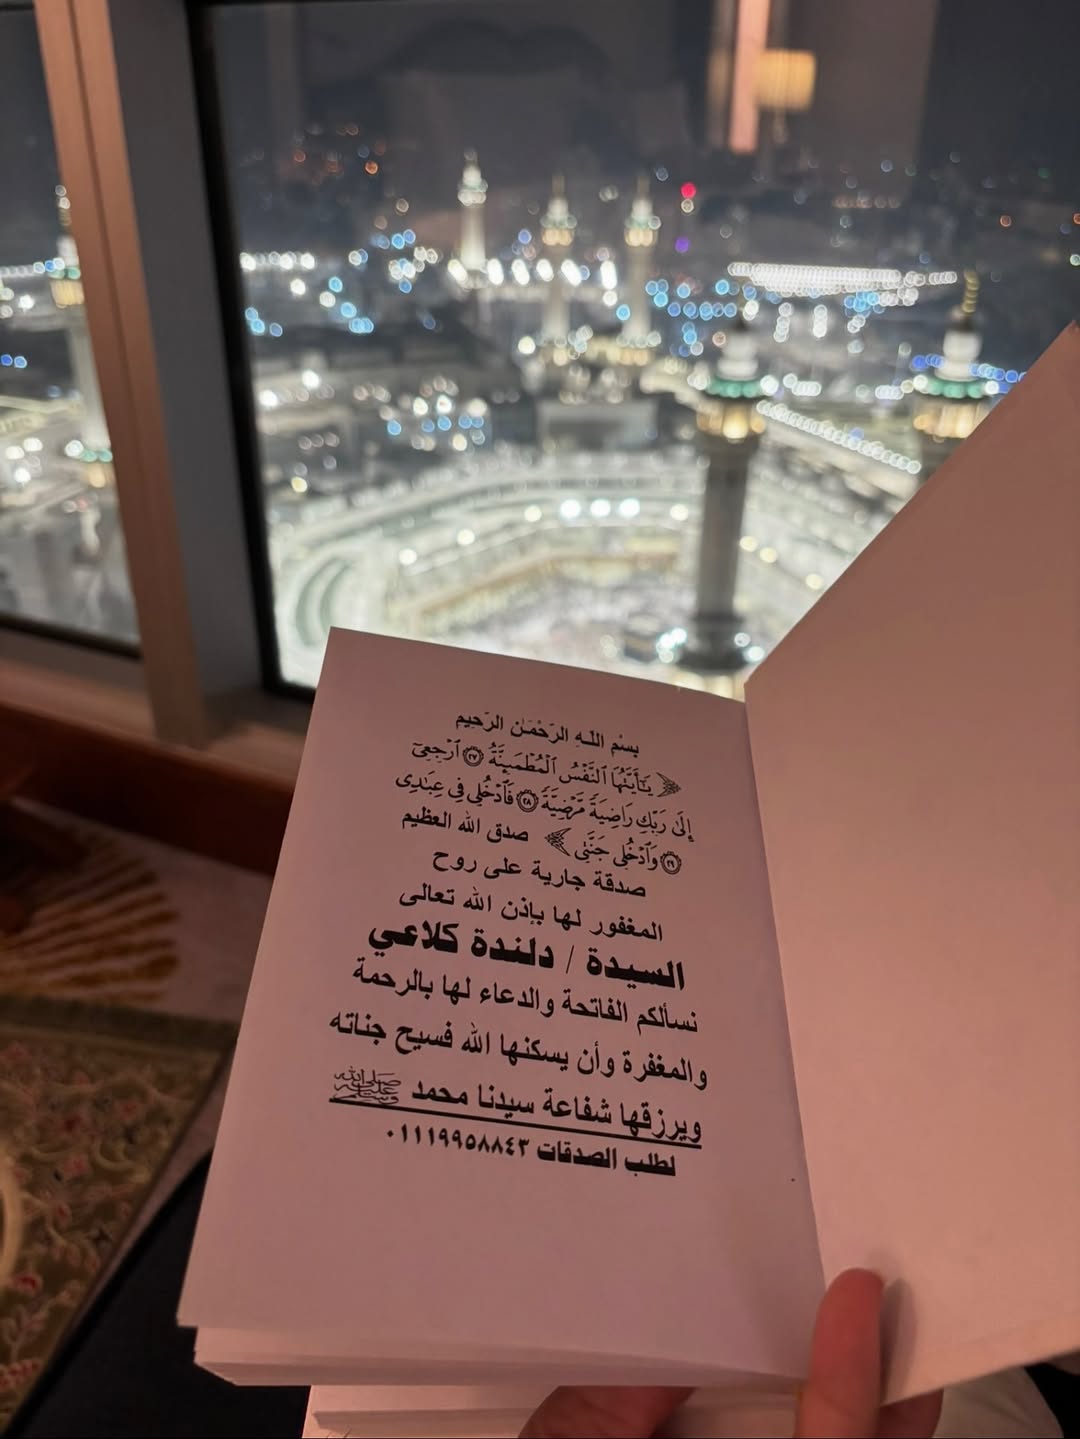 بِسْمِ اللَّـهِ الرَّحْمَـٰنِ الرَّحِيمِ
﴿ يَـٰٓأَيَّتُهَا ٱلنَّفْسُ ٱلْمُطْمَئِنَّةُ ٢٧ ٱرْجِعِىٓ
إِلَىٰ رَبِّكِ رَاضِيَةً مَّرْضِيَّةً ٢٨ فَٱدْخُلِى فِى عِبَـٰدِى
٢٩ وَٱدْخُلِى جَنَّتِى ﴾ صدق الله العظيم
صدقة جارية على روح
المغفور لها بإذن الله تعالى
السيدة / دلندة كلاعي
نسألكم الفاتحة والدعاء لها بالرحمة
والمغفرة وأن يسكنها الله فسيح جناته
ويرزقها شفاعة سيدنا محمد ﷺ
لطلب الصدقات ٠١١١٩٩٥٨٨٤٣